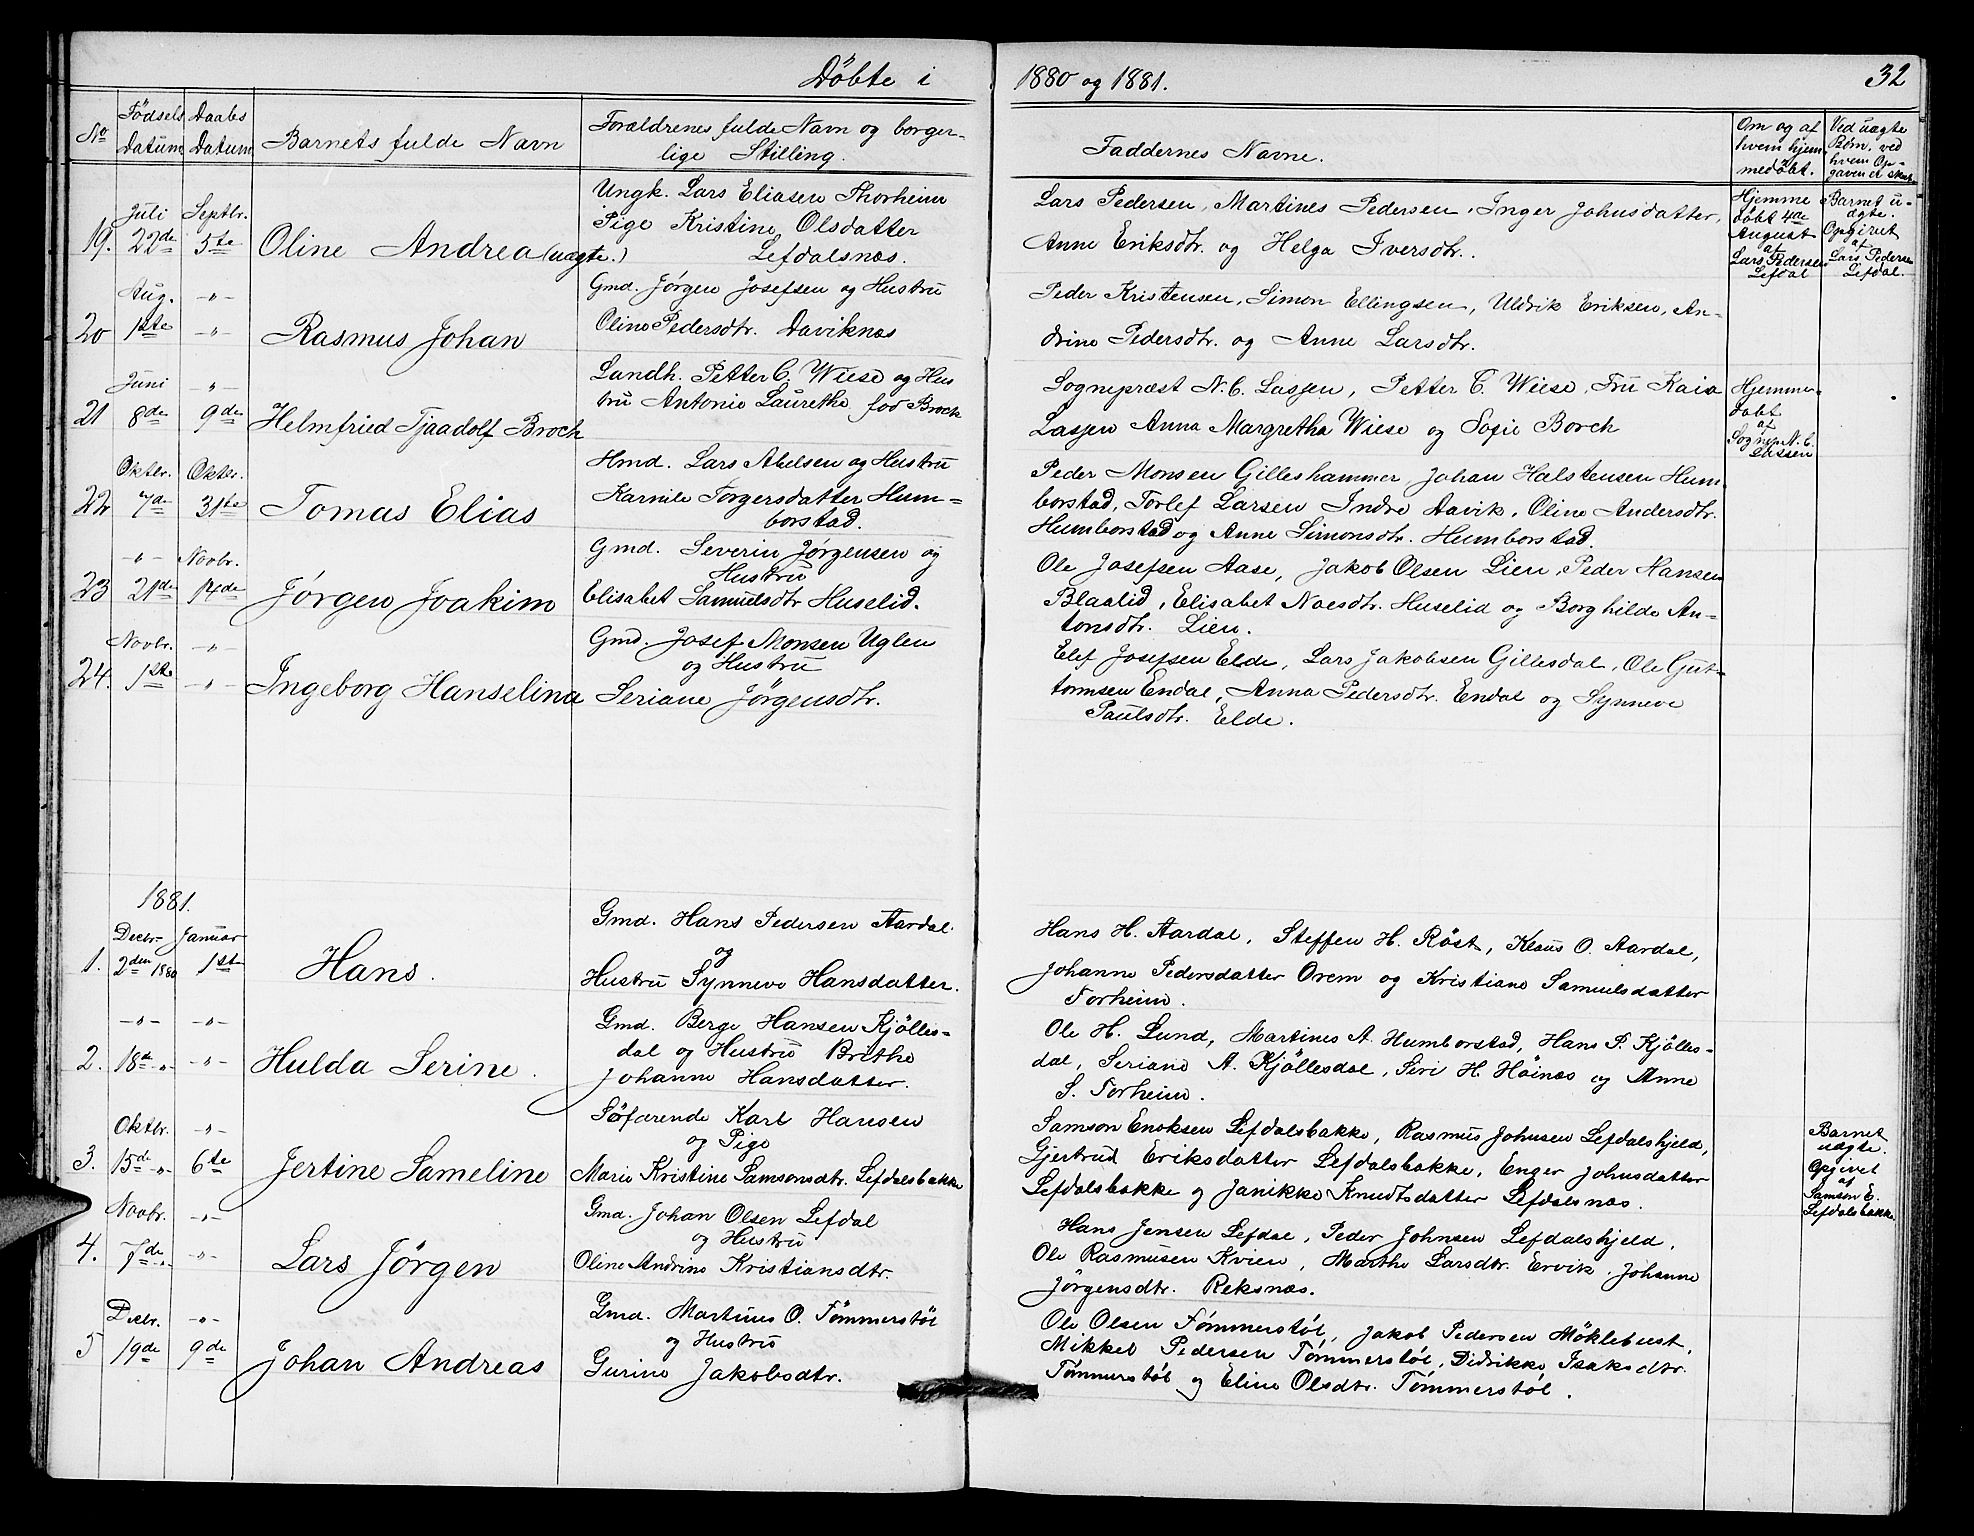 Döbte i 1880 og 1881. 32
No
Födsels Datum
Daabs Datum
Barnets fulde Navn
Forældrenes fulde Navn og borger-
lige Stilling.
Faddernes Navne.
Om og af
hvem hjem-
medöbt.
Ved uægte
Børn, ved
hvem Op-
gaven er skeet
19. Juli 22de Septbr. 5te Oline Andrea (uægte.)
Ungk. Lars Eliasen Thorheim
Pige Kristine Olsdatter
Lefdalsnæs.
Lars Pedersen, Martines Pedersen, Inger Johnsdatter,
Anne Eriksdtr. og Helga Iversdtr.
Hjemme
döbt 4de
August
af
Lars Pedersen
Lefdal
Barnet u-
ægte.
Opgivet
af
Lars Pedersen
Lefdal.
20 Aug. 1ste -"- -"- Rasmus Johan
Gmd. Jörgen Josefsen og Hustru
Oline Pedersdtr. Daviknæs
Peder Kristensen, Simon Ellingsen, Uldrik Eriksen, An-
drine Pedersdtr. og Anne Larsdtr.
21 Juni 8de -"- 9de Helmfried Tjaadolf Broch
Landh. Petter C. Wiese og Hus
tru Antonie Laurethe fød Broch
Sognepræst N. C. Lassen, Petter C. Wiese, Fru Kaia
Lassen Anna Margretha Wiese og Sofie Borch
Hjemme-
döbt
af
Sognep. N. C.
Lassen
22 Oktbr. 7de Oktbr. 31te Tomas Elias
Hmd. Lars Abelsen og Hustru
Karnile Torgersdatter Hum-
borstad.
Peder Monsen Gilleshammer, Johan Halstensen Hum-
borstad, Torlef Larsen Indre Davik, Oline Andersdtr.
Humborstad og Anne Simonsdtr. Humborstad.
23 -"- 21de Novbr. 14de Jörgen Joakim
Gmd. Severin Jörgensen og
Hustru
Elisabet Samuelsdtr Huselid.
Ole Josefsen Aase, Jakob Olsen Lien, Peder Hansen
Blaalid, Elisabet Noesdtr. Huselid og Borghilde An-
tonsdtr. Lien.
24. Novbr. 1ste -"- -"- Ingeborg Hanselina
Gmd. Josef Monsen Uglen
og Hustru
Seriane Jörgensdtr.
Elef Josefsen Elde, Lars Jakobsen Gillesdal, Ole Gut-
tormsen Endal, Anna Pedersdtr. Endal og Synneve
Paulsdtr. Elde.
1881.
1. Decbr. 2den 1880 Januar 1ste Hans.
Gmd. Hans Pedersen Aardal
og
Hustru Synneve Hansdatter.
Hans H. Aardal, Steffen H. Röst, Klaus O. Aardal,
Johanne Pedersdatter Orem og Kristiane Samuelsdatter
Torheim.
2. -"- 18de -"- -"- -"- Hulda Serine.
Gmd. Berge Hansen Kjölles-
dal og Hustru Brithe
Johanne Hansdatter.
Ole H. Lund, Martines A. Humborstad, Hans P. Kjölles-
dal, Seriane A. Kjöllesdal, Siri H. Höinæs og Anne
S. Torheim.
3. Oktbr. 15de -"- -"- 6te Jertine Sameline
Söfarende Karl Hansen
og Pige
Marie Kristine Samsonsdtr. Lefdalsbakke
Samson Enoksen Lefdalsbakke, Rasmus Johnsen Lefdalshjeld,
Gjertrud Eriksdatter Lefdalsbakke, Enger Johnsdatter
Lefdalsbakke og Janikke Knudtsdatter Lefdalsnæs.
Barnet
uægte.
Opgivet
af
Samson E.
Lefdalsbakke
4. Novbr. 7de -"- -"- -"- Lars Jörgen
Gmd. Johan Olsen Lefdal
og Hustru
Oline Andrine Kristiansdtr.
Hans Jensen Lefdal, Peder Johnsen Lefdalshjeld,
Ole Rasmusen Kvien, Marthe Larsdtr. Ervik, Johanne
Jörgensdtr. Reksnæs.
5 Decbr. 19de -"- 9de Johan Andreas
Gmd. Martinus O. Tömmerstöl
og Hustru
Gurine Jakobsdtr.
Ole Olsen Tömmerstöl, Jakob Pedersen Möklebust,
Mikkel Pedersen Tömmerstöl, Didrikke Isaksdtr.
Tömmerstöl og Eline Olsdtr. Tömmerstöl.